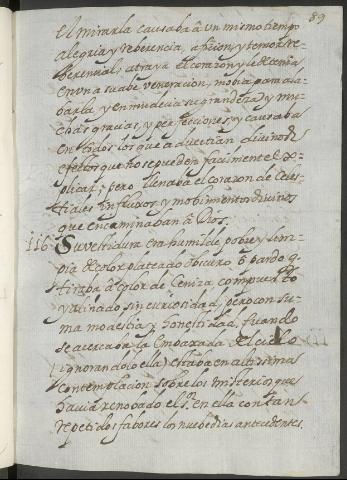 89
El mirarla causaba â un mismo tiempo
alegria y reberencia, aficion, y temor re-
berencial: atraya el corazon, y le detenia
en vna suabe veneracion, mobia para ala-
barla, y enmudecia su grandeza, y mu-
chas gracias, y perfecciones, y causaba
en todos los que aduertian diuinos
efectos que no se pueden facilmente ex-
plicar; pero llenaba el corazon de Celes-
tiales influxos, y mobimientos diuinos
que encaminaban â Dios.
116 Su vestidura era humilde, pobre, y lim-
pia de color plateado obscuro ô pardo q.
tiraba â color de Ceniza compuesto
y aliñado sin curiosidad, pero con su-
ma modestia, y honestidad, quando
se acercaba la Embaxada del cielo
(ignorandolo ella) estaba en altissima
contemplacion sobre los misterios que
hauia renobado el S.r en ella con tan
repetidos fabores los nuebe dias antecedentes.